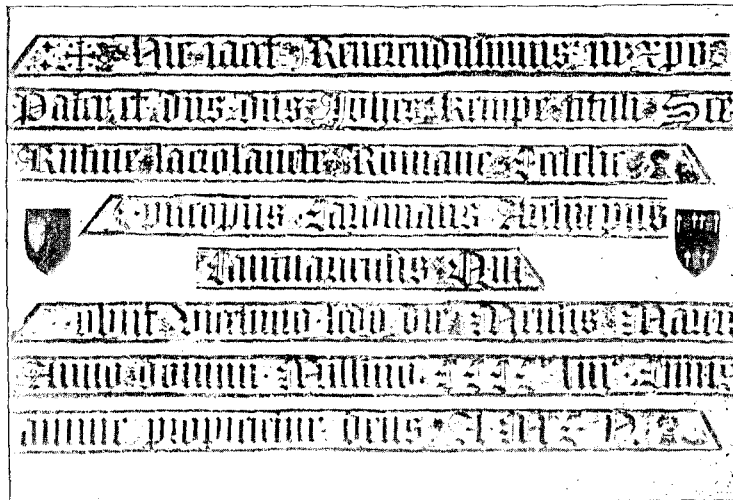 Hic iacet Reverendissimus in xpo
Pater et dns dns Johes Kempe tituli Sce
Rufine sacrosancte Romane Ecclie
Episcopus Cardinalis Archiepus
Cantuariensis Qui
obiit vicesimo scdo die Mensis Marcii
Anno domini Millmo CCCC liii Cuius
anime propicietur deus AMEN